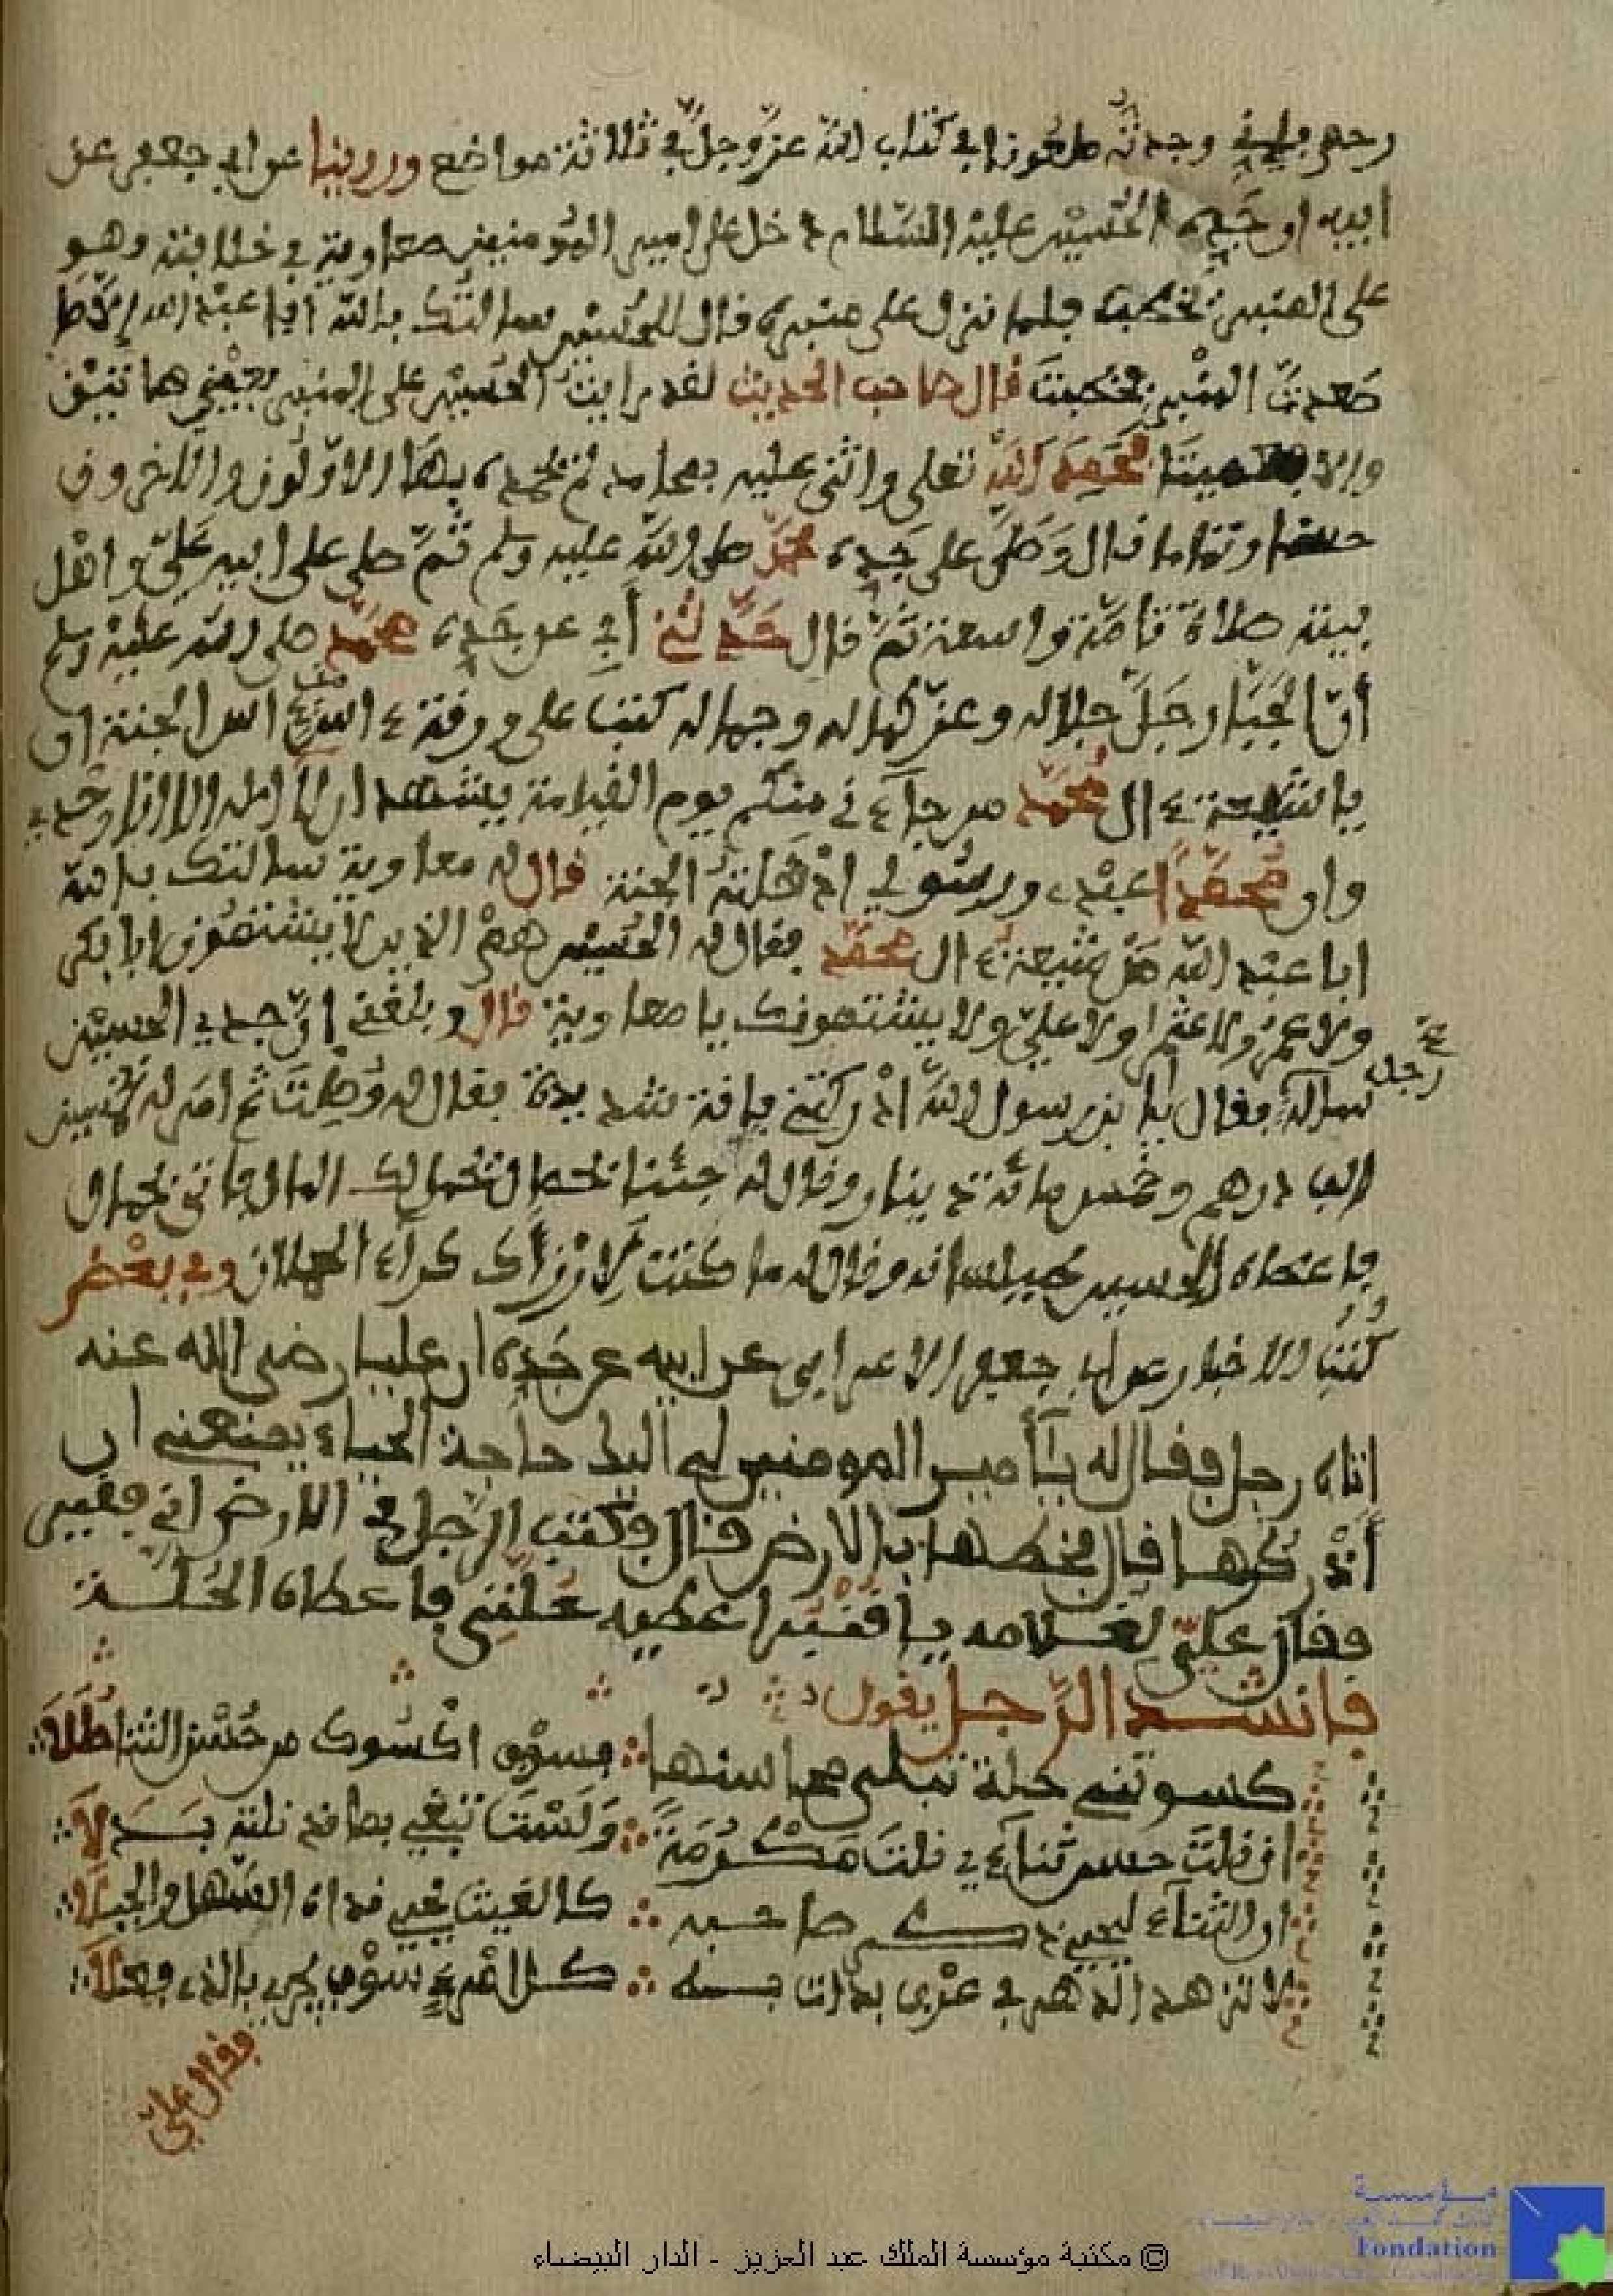 رحم فإني وجدته ملعونا في كتاب الله عز وجل في ثلاثة مواضع وروينا عن ابي جعفر عن
ابيه ان جده الحسين عليه السلام دخل على امير المؤمنين معاوية في خلافته وهو
على المنبر يخطب فلما نزل على منبره قال للحسين سالتك بالله ابا عبد الله الا ما
صعدت المنبر فخطبت قال صاحب الحديث لقد رايت الحسين على المنبر
فحمد الله تعلى واثنى عليه بمحامد لم يحمده بها الاولون والاخرون
حسنا وتماما قال وصلى على جده محمد صلى الله عليه وسلم ثم صلى على ابيه علي واهل
بيته صلاة تامة واسعة ثم قال حدثني أبي عن جده محمد صلى الله عليه وسلم
أن الجبار جل جلاله وعز كماله وجماله كتب على ورقة ءاس الجنة ان
يا شيعة ءال محمد من جاءني منكم يوم القيامة يشهد ان لا اله الا انا وحدي
وان محمدا عبدي ورسولي ادخلته الجنة قال له معاوية سالتك بالله
ابا عبد الله من شيعة ءال محمد فقال له الحسين هم الذين لا يشتمون ابا بكر
ولا عمر ولا عثمان ولا علي ولا يشتمونك يا معاوية قال وبلغني ان جدي الحسين
رجل
ساله فقال يا بن رسول الله ادركتني فاقة شديدة فقال له وصلت ثم امر له
الف درهم وخمس مائة دينار وقال له جئنا بحمال نحمل لك المال فاتى بحمال
فاعطاه الحسين طيلسانه وقال له ما كنت لارزأك كراء الحملان وفي بعض
كتب الاخبار عن ابي جعفر الاعرابي عن ابيه عن جده ان عليا رضي الله عنه
اتاه رجل فقال له يا أمير المومنين لي اليك حاجة الحياء يمنعني ان
أذكرها قال فخطها بالارض قال فكتب الرجل في الارض اني فقير
فقال علي لغلامه يا قنبر اعطيه حلتي فاعطاه الحلة
فانشد الرجل يقول
كسوتني حلة تبلى محاسنها فسوف اكسوك من حسن الثنا حللا
ان نلت حسن ثناءي نلت مكرمة ولست تبغي بما قد نلته بدلا
ان الثناء ليحيي ذكر صاحبه كالغيث يحيي نداه السهل والجبلا
لا تزهد الدهر في عرف بدات به كل امرئ سوف يجزى بالذي فعلا
فقال علي
© مكتبة مؤسسة الملك عبد العزيز - الدار البيضاء
مؤسسة
Fondation